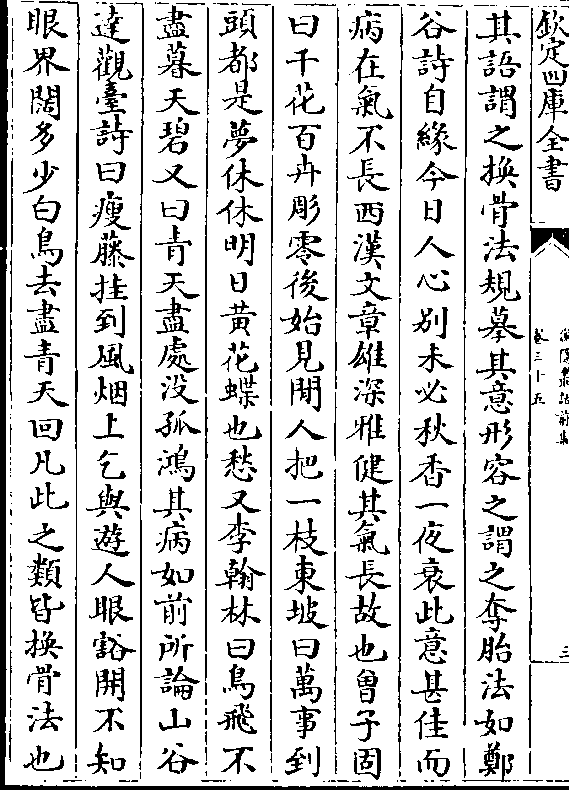 欽定四庫全書
卷三十五
三
其語謂之換骨法規摹其意形容之謂之奪胎法如鄭
谷詩自緣今日人心别未必秋香一夜衰此意甚佳而
病在氣不長西漢文章雄深雅健其氣長故也曾子固
曰千花百卉彫零後始見閒人把一枝東坡曰萬事到
頭都是夢休休明日黄花蝶也愁又李翰林曰鳥飛不
盡暮天碧又曰青天盡處没孤鴻其病如前所論山谷
達觀臺詩曰瘦藤挂到風烟上乞與遊人眼豁開不知
眼界闊多少白鳥去盡青天回凡此之類皆換骨法也